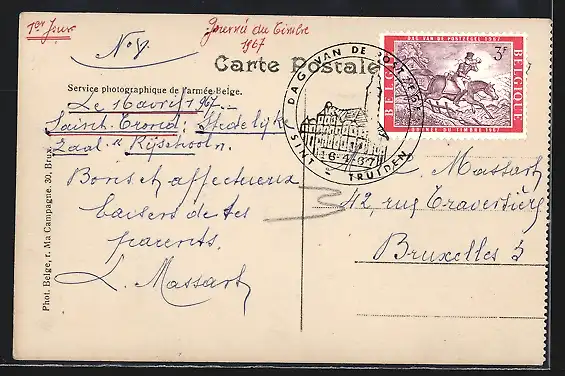 1er Jour
Journée du Timbre
1967
No 8.
Carte Postale
Service photographique de l'armée Belge.
Le 16 avril 1967.
Saint-Trond: Stedelijke
Zaal "Rijschool".
Bons et affectueux
baisers de tes
parents.
L. Massart
Phot. Belge, r. Ma Campagne. 30, Brux.
DAG VAN DE POSTZEGEL
16-4-67
SINT - TRUIDEN
DAG VAN DE POSTZEGEL 1967
3F
BELGIE
BELGIQUE
JOURNEE DU TIMBRE 1967
L. Massart
42, rue Traversière
Bruxelles 3